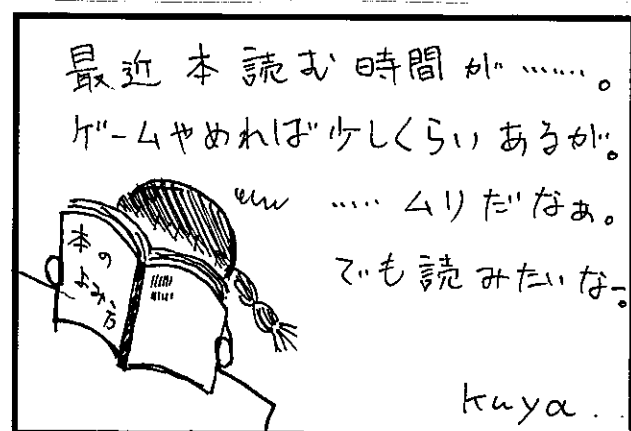 最近本読む時間が……。
ゲームやめれば少しくらいあるが。
……ムリだなぁ。
でも読みたいなー。
本の
よみ方
kuya..